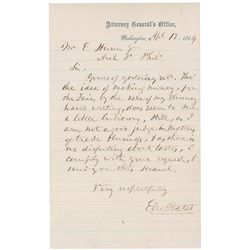 Attorney General's Office,
Washington, Apl 12, 1864
Mr. E.
Arch St Phila
Sir,
Yours of yesterday recd. Tho'
the idea of making money, for
the Fair, by the sale of my
hand writing, does seem to me
a little ludicrous, still, as I
am not a good judge in matters
of trade & there is
no disputing about tastes, I
comply with your request, &
send you this
Very respectfully
Edw Bates